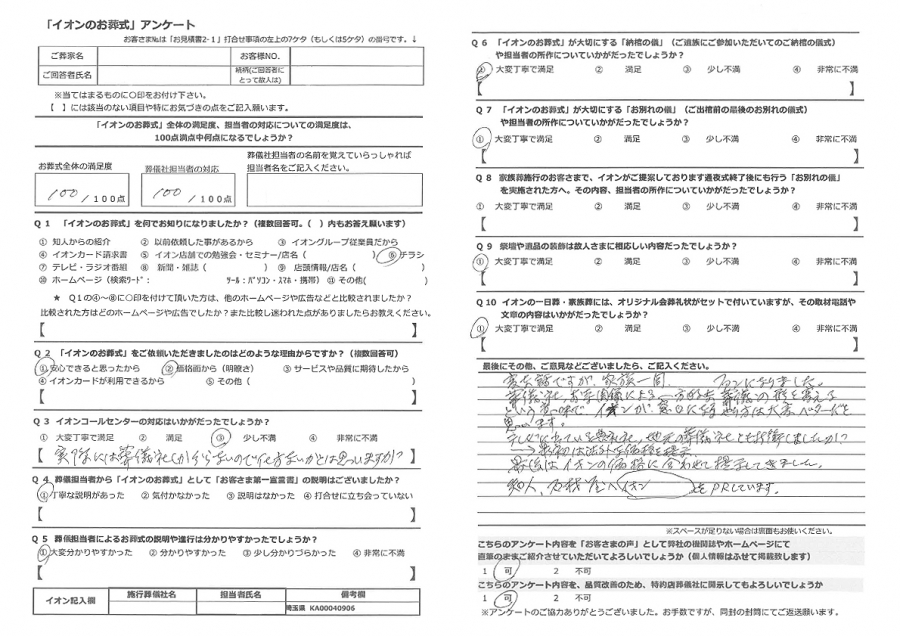 「イオンのお葬式」アンケート
お客さま№は「お見積書2-1」打合せ事項の左上の7ケタ（もしくは5ケタ）の番号です。↓
ご葬家名 お客様NO.
ご回答者氏名 続柄(ご回答者にとって故人は)
※当てはまるものに○印をお付け下さい。
【 】には該当のない項目や特にお気づきの点をご記入願います。
「イオンのお葬式」全体の満足度、担当者の対応についての満足度は、
100点満点中何点になるでしょうか？
お葬式全体の満足度 葬儀社担当者の対応 葬儀社担当者の名前を覚えていらっしゃれば
担当者名をご記入ください。
100 / 100点 100 / 100点
Q1 「イオンのお葬式」を何でお知りになりましたか？（複数回答可。（ ）内もお答え願います）
① 知人からの紹介 ② 以前依頼した事があるから ③ イオングループ従業員だから
④ イオンカード請求書 ⑤ イオン店舗での勉強会・セミナー/店名（ ） ⑥ チラシ
⑦ テレビ・ラジオ番組 ⑧ 新聞・雑誌（ ） ⑨ 店頭情報/店名（ ）
⑩ ホームページ（検索ﾜｰﾄﾞ： ﾂｰﾙ：ﾊﾟｿｺﾝ・ｽﾏﾎ・携帯） ⑪ その他( )
★ Q1の④～⑧に○印を付けて頂いた方は、他のホームページや広告などと比較されましたか？
比較された方はどのホームページや広告でしたか？また比較し迷われた点がありましたらお教えください。
【 】
Q2 「イオンのお葬式」をご依頼いただきましたのはどのような理由からですか？（複数回答可）
① 安心できると思ったから ② 価格面から（明瞭さ） ③ サービスや品質に期待したから
④ イオンカードが利用できるから ⑤ その他（ ）
【 】
Q3 イオンコールセンターの対応はいかがでしたか？
① 大変丁寧で満足 ② 満足 ③ 少し不満 ④ 非常に不満
【 実際には葬儀社しか分らないので仕方ないかとは思いますが？ 】
Q4 葬儀担当者から「イオンのお葬式」として「お客さま第一宣言書」の説明はございましたか？
① 丁寧な説明があった ② 気付かなかった ③ 説明はなかった ④ 打合せに立ち会っていない
【 】
Q5 葬儀担当者によるお葬式の説明や進行は分かりやすかったでしょうか？
① 大変分かりやすかった ② 分かりやすかった ③ 少し分かりづらかった ④ 非常に不満
【 】
イオン記入欄 施行葬儀社名 担当者氏名 備考欄
埼玉県 KA00040906
Q6 「イオンのお葬式」が大切にする「納棺の儀」（ご遺族にご参加いただいてのご納棺の儀式）
や担当者の所作についていかがだったでしょうか？
① 大変丁寧で満足 ② 満足 ③ 少し不満 ④ 非常に不満
【 】
Q7 「イオンのお葬式」が大切にする「お別れの儀」（ご出棺前の最後のお別れの儀式）
や担当者の所作についていかがだったでしょうか？
① 大変丁寧で満足 ② 満足 ③ 少し不満 ④ 非常に不満
【 】
Q8 家族葬施行のお客さまで、イオンがご提案しております通夜式終了後にも行う「お別れの儀」
を実施された方へ。その内容、担当者の所作についていかがだったでしょうか？
① 大変丁寧で満足 ② 満足 ③ 少し不満 ④ 非常に不満
【 】
Q9 祭壇や遺品の装飾は故人さまに相応しい内容だったでしょうか？
① 大変丁寧で満足 ② 満足 ③ 少し不満 ④ 非常に不満
【 】
Q10 イオンの一日葬・家族葬には、オリジナル会葬礼状がセットで付いていますが、その取材電話や
文章の内容はいかがだったでしょうか？
① 大変丁寧で満足 ② 満足 ③ 少し不満 ④ 非常に不満
【 】
最後にその他、ご意見などございましたら、ご記入ください。
ですが、家族一同、 ファンになりました。
葬儀社 葬儀の形を
という意味で イオンが窓口になる 方は大変ベターだと
思います。
地元の葬儀社とも しましたが？
→ 最初は法外な価格を提示
最後はイオンの価格に合わせて提示してきました。
知人、石材屋へイオン をPRしています。
※スペースが足りない場合は裏面もお使いください。
こちらのアンケート内容を「お客さまの声」として弊社の機関誌やホームページにて
直筆のままご紹介させていただいてよろしいでしょうか（個人情報はふせて掲載致します）
1 可 2 不可
こちらのアンケート内容を、品質改善のため、特約店葬儀社に開示してもよろしいでしょうか
1 可 2 不可
※アンケートのご協力ありがとうございました。お手数ですが、同封の封筒にてご返送願います。